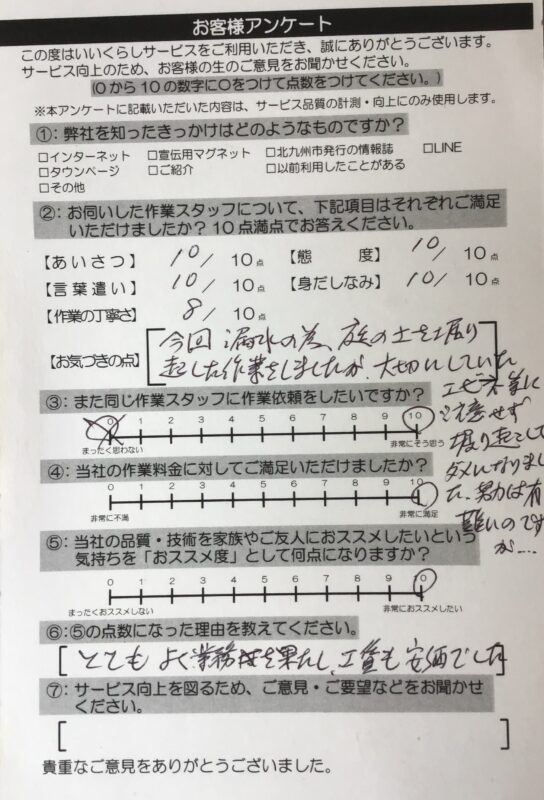 お客様アンケート
この度はいいくらしサービスをご利用いただき、誠にありがとうございます。
サービス向上のため、お客様の生のご意見をお聞かせください。
(0 から 10 の数字に〇をつけて点数をつけてください。)
※本アンケートに記載いただいた内容は、サービス品質の計測・向上にのみ使用します。
①：弊社を知ったきっかけはどのようなものですか？
□インターネット □宣伝用マグネット □北九州市発行の情報誌 □LINE
□タウンページ □ご紹介 □以前利用したことがある
□その他
②：お伺いした作業スタッフについて、下記項目はそれぞれご満足
いただけましたか？10 点満点でお答えください。
【あいさつ】 10/10点 【態 度】 10/10点
【言葉遣い】 10/10点 【身だしなみ】 10/10点
【作業の丁寧さ】 8/10点
【お気づきの点】
今回漏水の為、庭の土を堀り
起した作業をしましたが、大切にしていた
エビネ等に
注意せず
堀り起こして
ダメになりまし
た、努力は有
難いのです
が....
③：また同じ作業スタッフに作業依頼をしたいですか？
0 1 2 3 4 5 6 7 8 9 10
まったく思わない 非常にそう思う
④：当社の作業料金に対してご満足いただけましたか？
0 1 2 3 4 5 6 7 8 9 10
非常に不満 非常に満足
⑤：当社の品質・技術を家族やご友人におススメしたいという
気持ちを「おススメ度」として何点になりますか？
0 1 2 3 4 5 6 7 8 9 10
まったくおススメしない 非常におススメしたい
⑥：⑤の点数になった理由を教えてください。
とてもよく業務を果たし、工賃も安価でした
⑦：サービス向上を図るため、ご意見・ご要望などをお聞かせ
ください。
貴重なご意見をありがとうございました。